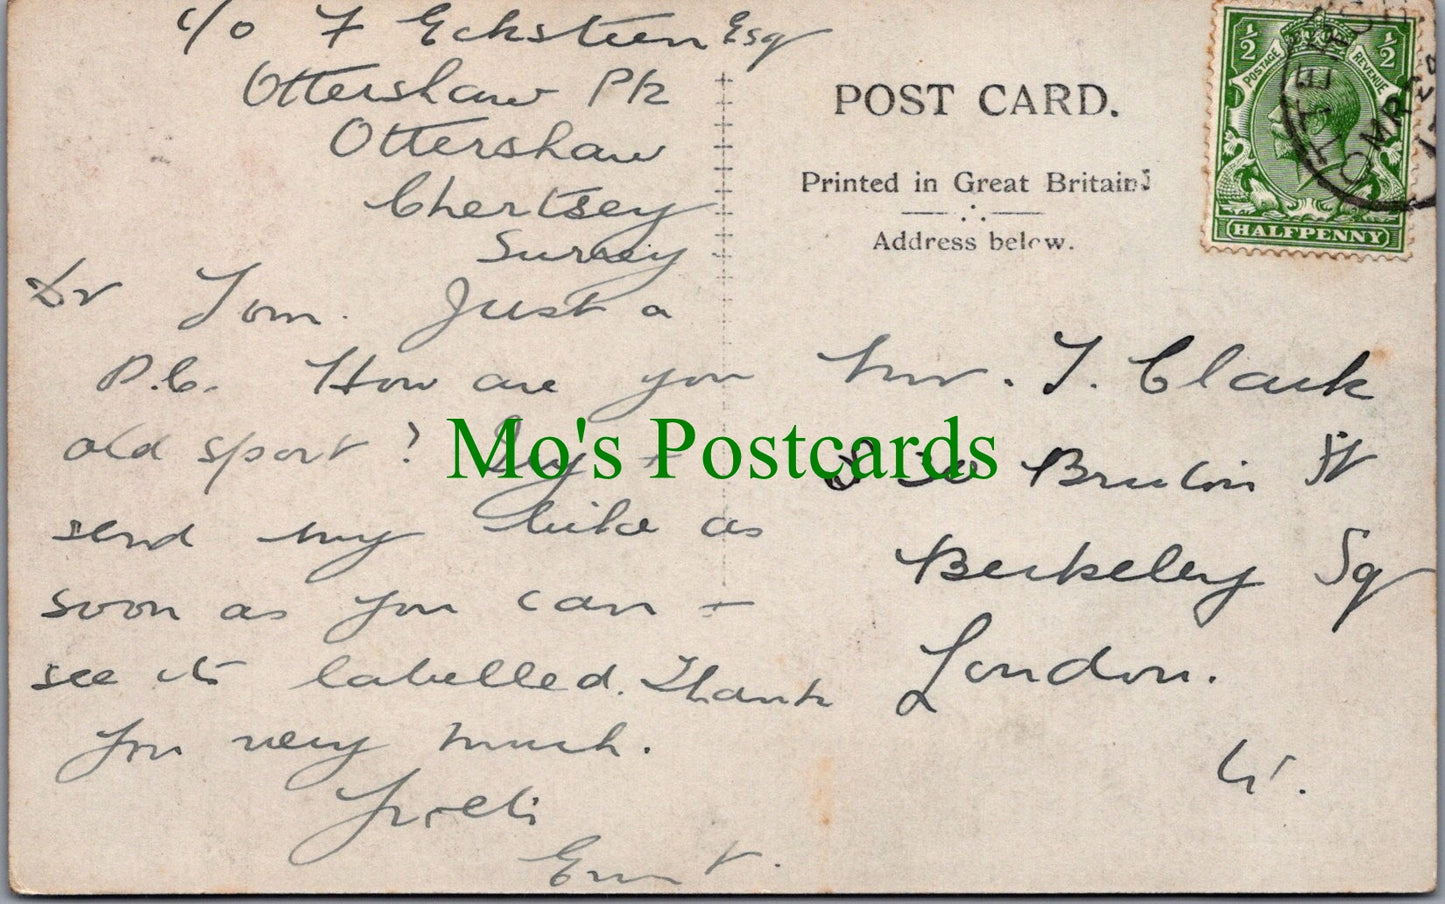 c/o F Eckstein Esq
Ottershaw Pk
Ottershaw
Chertsey
Surrey
Dr Tom. Just a
P.C. How are you
old sport? Try +
send my bike as
soon as you can +
see it labelled. Thank
you very much.
Ernest.
POST CARD.
Printed in Great Britain
Address below.
½ ½
POSTAGE REVENUE
HALFPENNY
Mr. T. Clark
30 Bruton St
Berkeley Sq
London.
W.
Mo's Postcards